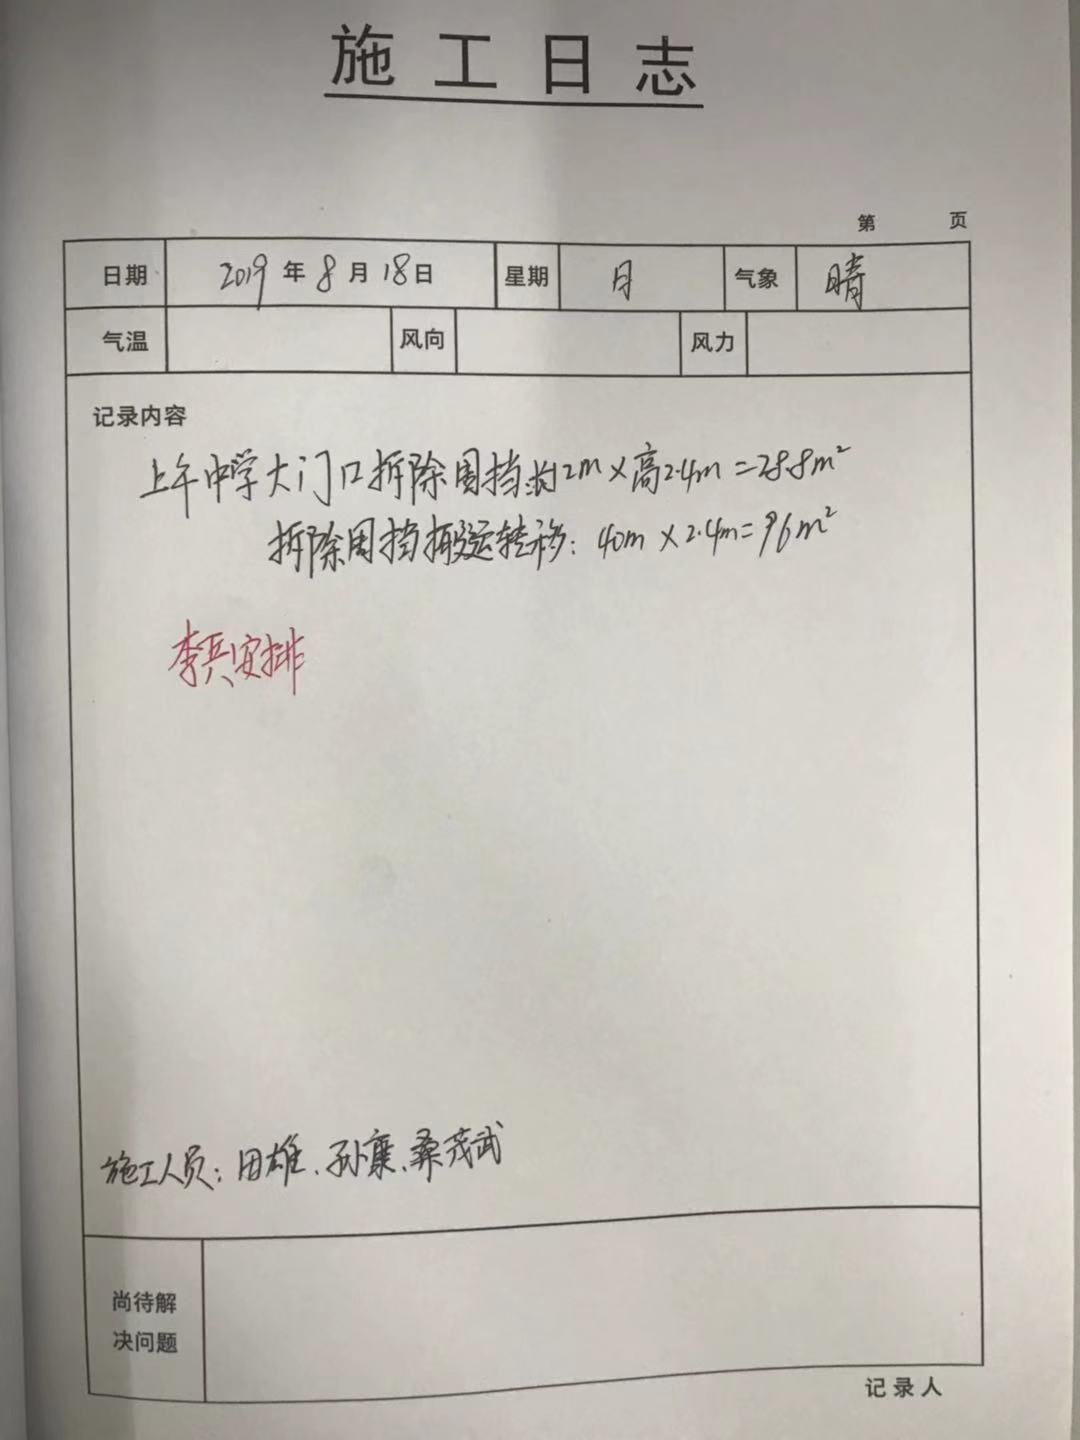 施工日志
第 页
日期 2019年8月18日 星期 日 气象 晴
气温 风向 风力
记录内容
上午中学大门口拆除围挡:约12m×高2.4m=28.8m²
拆除围挡搬运转移:40m×2.4m=96m²
李兵安排
施工人员:田雄、孙、桑茂武
尚待解
决问题
记录人